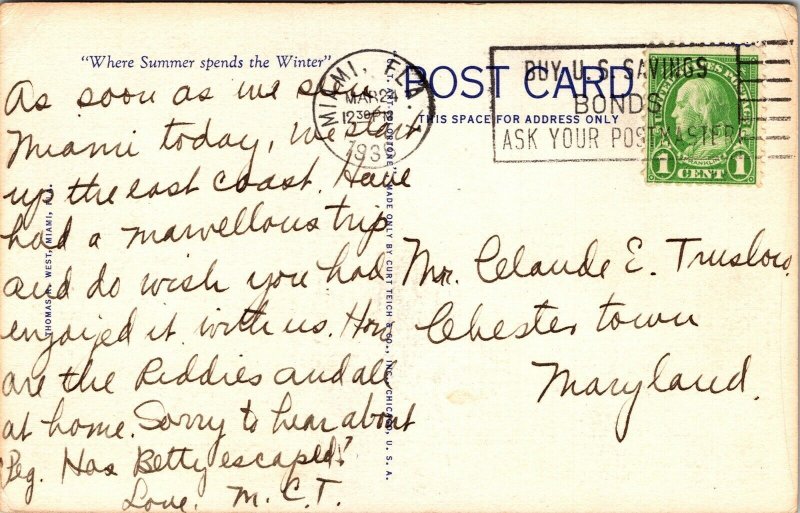 "Where Summer spends the Winter"
As soon as we see
Miami today, we start
up the east coast. Have
had a marvellous trip
and do wish you had
enjoyed it with us. How
are the Kiddies and all
at home. Sorry to hear about
Peg. Has Betty escaped?
Love. M.C.T.
MIAMI, FLA.
MAR 24
12 30 PM
193
POST CARD
THIS SPACE FOR ADDRESS ONLY
BUY U.S. SAVINGS
BONDS
ASK YOUR POSTMASTER
FRANKLIN
1 CENT 1
Mr. Claude E. Truslow,
Chestertown
Maryland.
THOMAS WEST, MIAMI,
MADE ONLY BY CURT TEICH & CO., INC., CHICAGO, U. S. A.